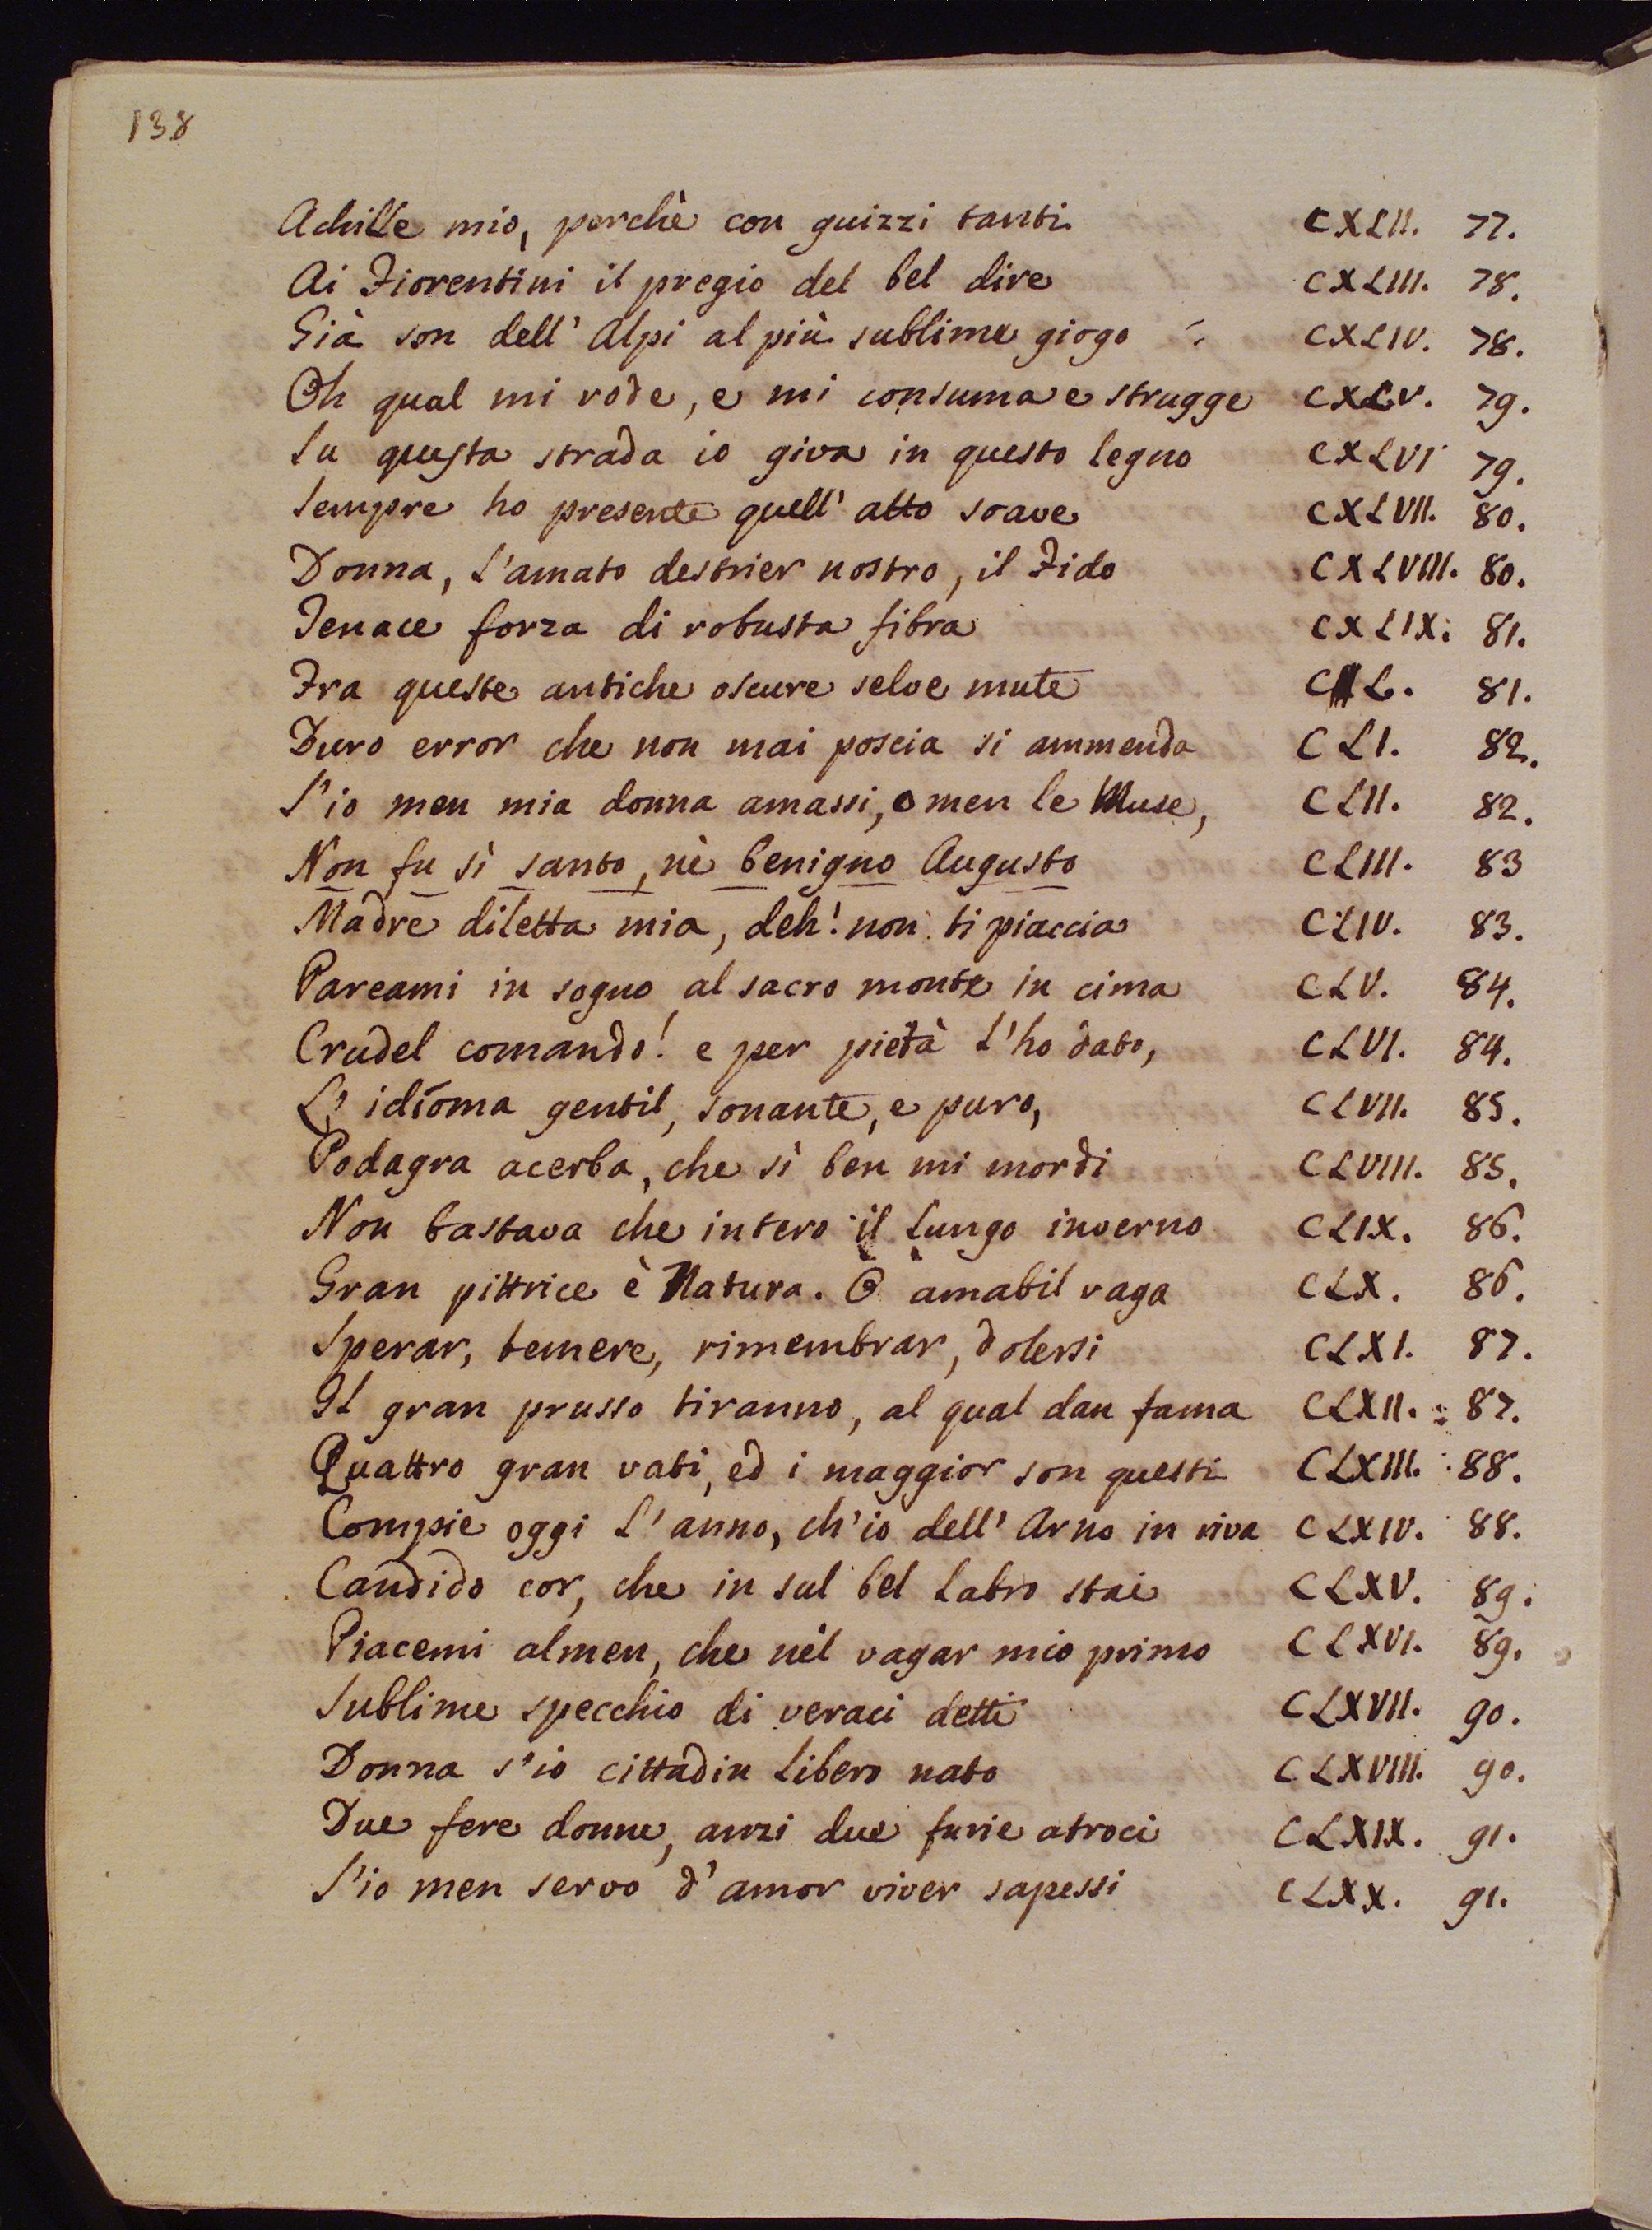 138
Achille mio, perchè con guizzi tanti CXLII. 77.
Ai Fiorentini il pregio del bel dire CXLIII. 78.
Già son dell' Alpi al più sublime giogo CXLIV. 78.
Oh qual mi rode, e mi consuma e strugge CXLV. 79.
Su questa strada io giva in questo legno CXLVI 79.
Sempre ho presente quell' atto soave CXLVII. 80.
Donna, l'amato destrier nostro, il Fido CXLVIII. 80.
Tenace forza di robusta fibra CXLIX. 81.
Fra queste antiche oscure selve mute CL. 81.
Duro error che non mai poscia si ammenda CLI. 82.
S'io men mia donna amassi, o men le Muse, CLII. 82.
Non fu sì santo, nè benigno Augusto CLIII. 83
Madre diletta mia, deh! non ti piaccia CLIV. 83.
Pareami in sogno al sacro monte in cima CLV. 84.
Crudel comando! e per pietà l'ho dato, CLVI. 84.
L' idïoma gentil, sonante, e puro, CLVII. 85.
Podagra acerba, che sì ben mi mordi CLVIII. 85.
Non bastava che intero il lungo inverno CLIX. 86.
Gran pittrice è Natura. O amabil vaga CLX. 86.
Sperar, temere, rimembrar, dolersi CLXI. 87.
Il gran prusso tiranno, al qual dan fama CLXII. 87.
Quattro gran vati, ed i maggior son questi CLXIII. 88.
Compie oggi l'anno, ch'io dell' Arno in riva CLXIV. 88.
Candido cor, che in sul bel labro stai CLXV. 89.
Piacemi almen, che nel vagar mio primo CLXVI. 89.
Sublime specchio di veraci detti CLXVII. 90.
Donna s'io cittadin libero nato CLXVIII. 90.
Due fere donne, anzi due furie atroci CLXIX. 91.
S'io men servo d'amor viver sapessi CLXX. 91.